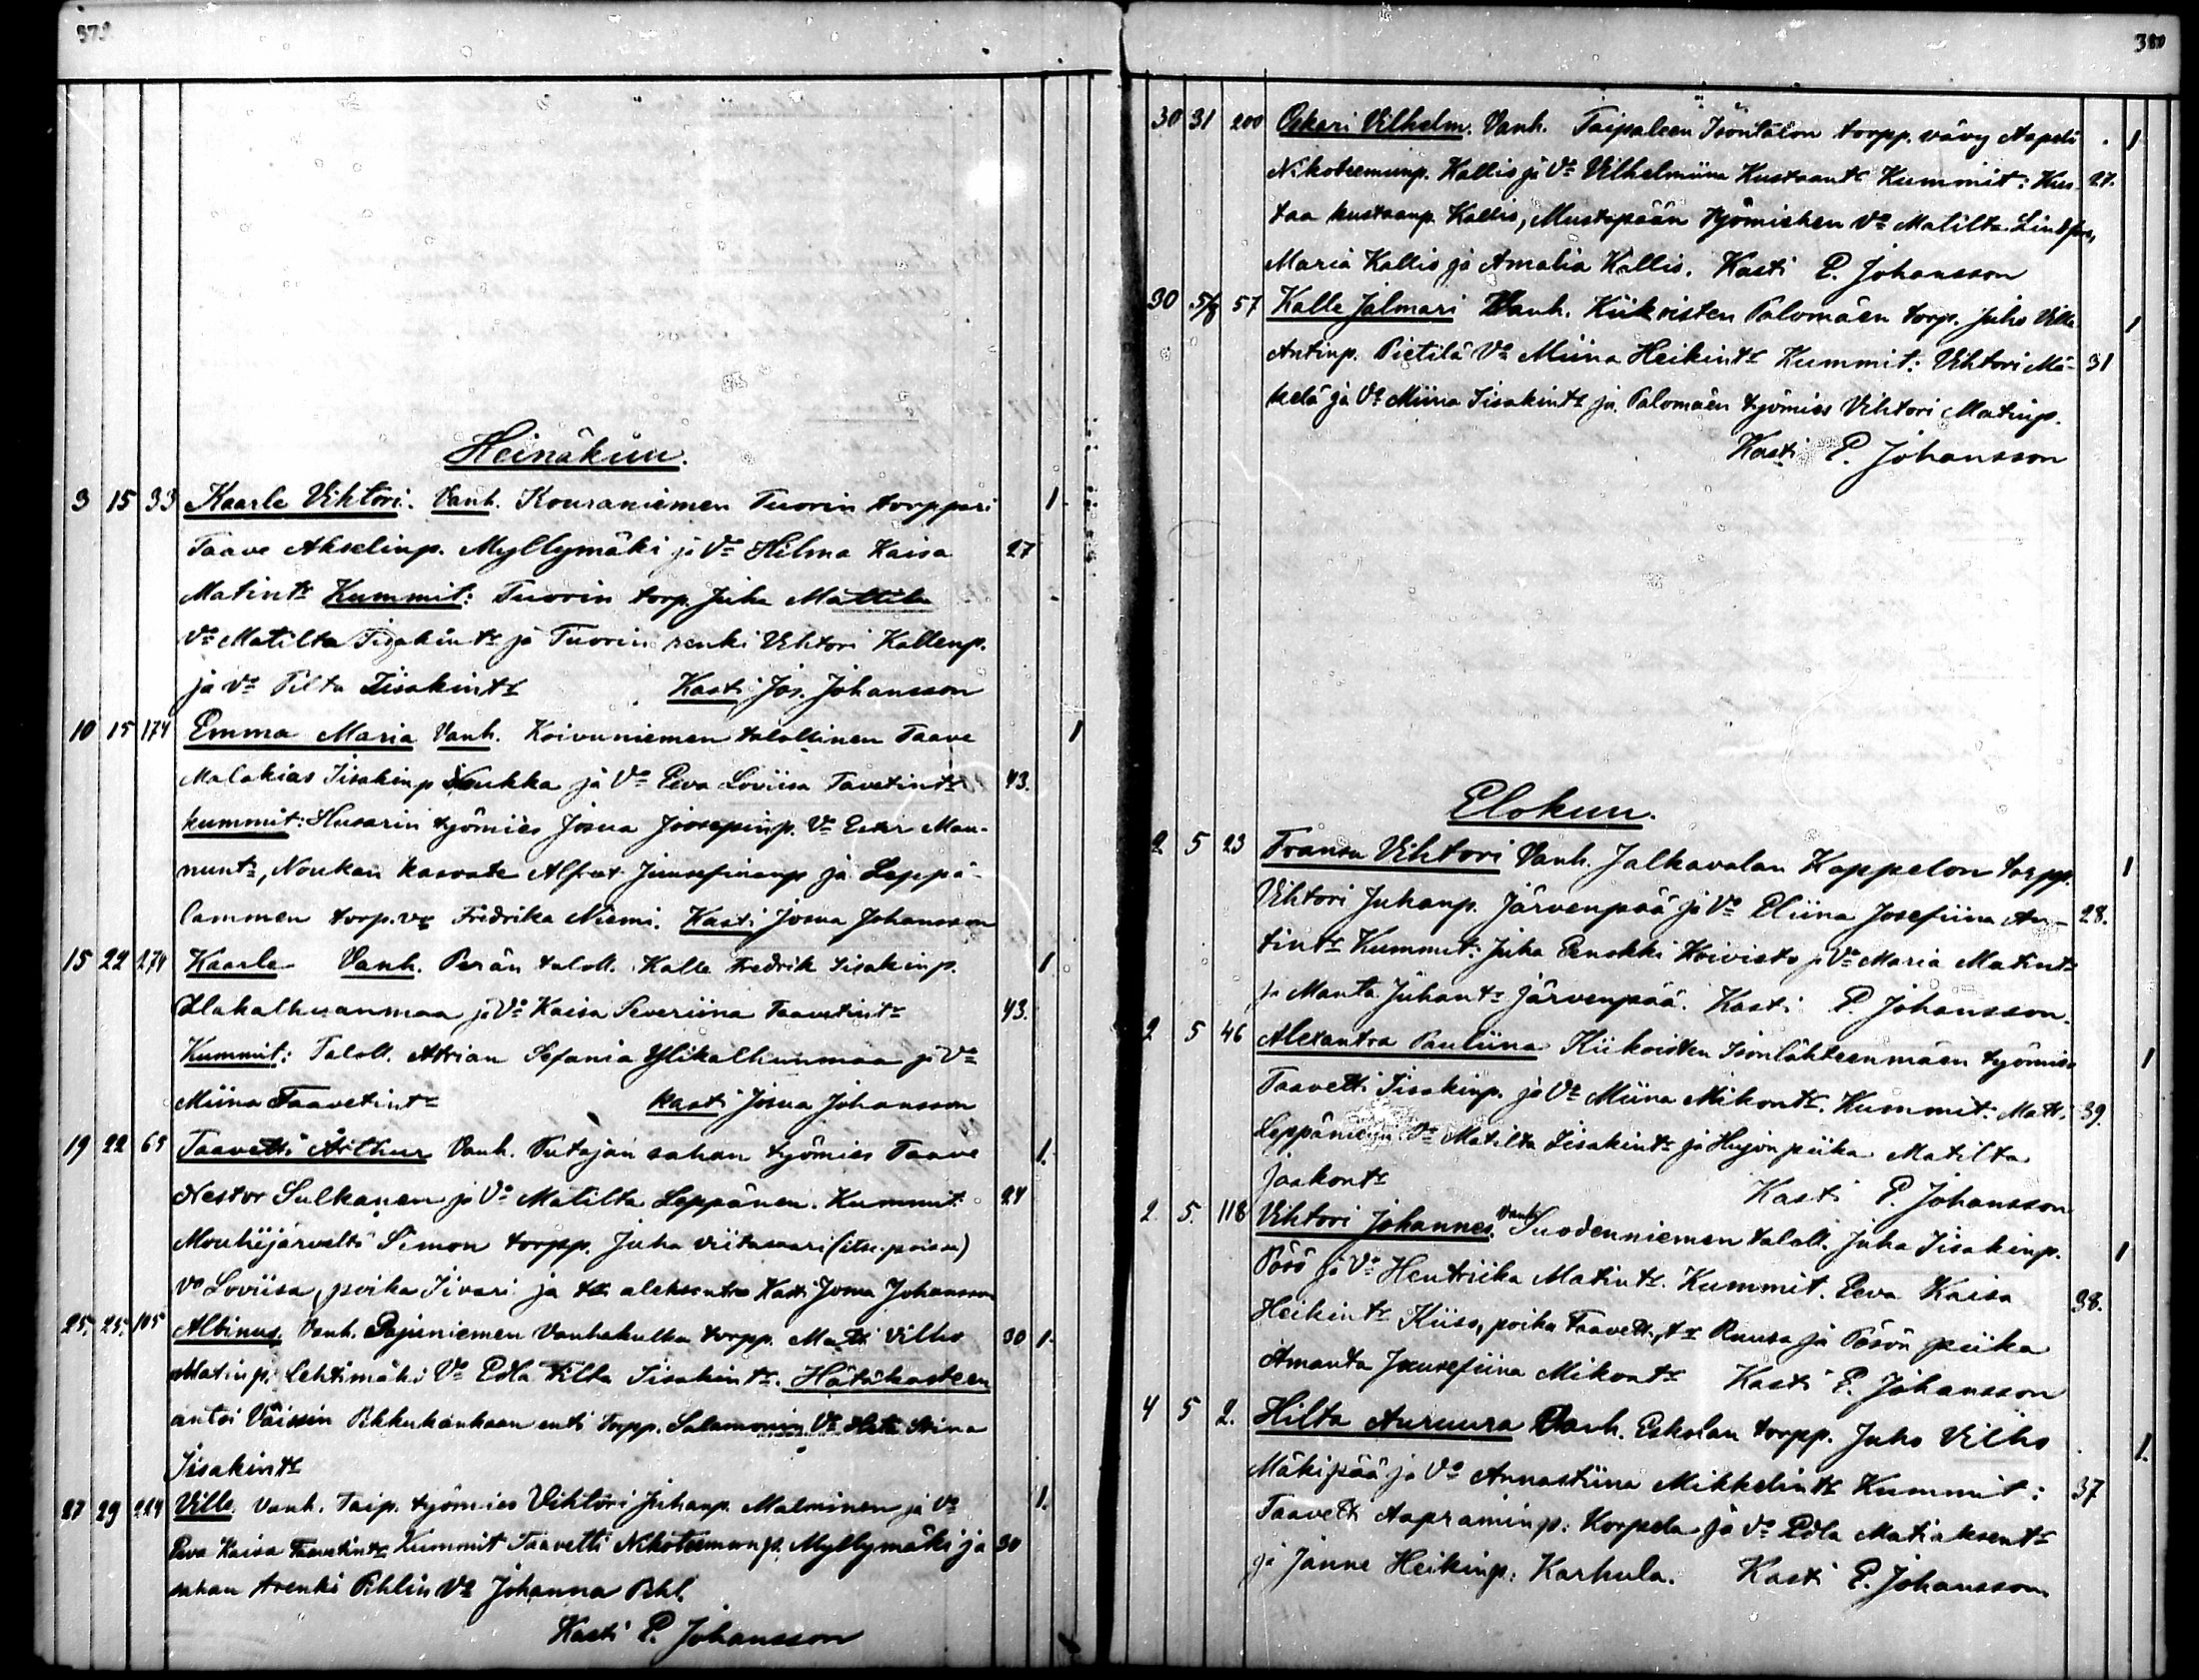 379
Heinäkuu.
3 15 33 Kaarle Vihtori. Vanh. Kouraniemen Tuorin torppari 1
Taave Akselinp. Myllymäki ja Vo Hilma Kaisa 27
Matintr Kummit: Tuorin torp. Juha Mattila
Vo Matilta Iisakintr ja Tuorin renki Vihtori Kallenp.
ja Vo Tilta Iisakintr Kasti Jos. Johansson
10 15 174 Emma Maria Vanh. Koivuniemen talollinen Taave 1
Malakias Iisakinp Noukka ja Vo Eeva Loviisa Tavetintr 43.
kummit: Husarin työmies Josua Joosepinp. Vo Ester Man-
nuntr, Noukan kasvate Alfret Juusefinanp ja Leppä-
lammen torp. vo Fridrika Niemi. Kasti Josua Johansson
15 22 274 Kaarle Vanh. Perän taloll. Kalle Fredrik Iisakinp. 1
Alakalhuanmaa ja Vo Kaisa Severiina Taavetintr 43.
Kummit: Taloll. Atrian Sefania Ylikalhuanmaa ja Vo
Miina Taavetintr kasti Josua Johansson
19 22 69 Taavetti Arthur Vanh. Putajan sahan työmies Taave 1.
Nestor Sulkanen ja Vo Matilta Leppänen. Kummit 24
Mouhijärveltä Simon torpp. Juha Viitasaari (itse poissa)
Vo Loviisa, poika Iivari ja tr aleksantra Kasti Josua Johansson
25. 25. 105 Albinus. Vanh. Pajuniemen Vanhakulku torpp. Matti Vilho 30 1.
Matinp. Lehtimäki Vo Edla Tilta Iisakintr. Hätäkasteen
antoi Väissin Pikkukankaan enti torpp. Salamonin Vo Heta Stina
Iisakintr
27 29 224 Ville Vanh. Taip. työmies Vihtori Juhanp. Malminen ja Vo 1.
Eeva Kaisa Taavetintr Kummit Taavetti Nikoteemunp. Myllymäki ja 30
sahan trenki Pihlin Vo Johanna Pihl.
Kasti P. Johansson
380
30 31 200 Oskari Vilhelm. Vanh. Taipaleen Isontalon torpp. vävy Aapeli 1
Nikoteemunp. Kallio ja Vo Vilhelmiina Kustaantr Kummit: Kus- 27.
taa kustaanp. Kallio, Mustapään työmiehen Vo Matilta Lindfors,
Maria Kallio ja Amalia Kallio. Kasti P. Johansson
30 5/8 57 Kalle Jalmari Vanh. Kiikoisten Palomäen torp. Juho Ville 1
Antinp. Pietilä Vo Miina Heikintr Kummit: Vihtori Mä- 31
kelä ja Vo Miina Iisakintr ja Palomäen työmies Vihtori Matinp.
Kasti P. Johansson
Elokuu.
2 5 23 Fransu Vihtori Vanh. Jalkavalan Koppelon torpp. 1
Vihtori Juhanp. Järvenpää ja Vo Eliina Josefiina An- 28.
tintr Kummit: Juha Eenokki Koivisto ja Vo Maria Matintr
ja Manta Juhantr Järvenpää. Kasti P. Johansson.
2 5 46 Alexantra Pauliina Kiikoisten Isonlähteenmäen työmies 1
Taavetti Iisakinp. ja Vo Miina Mikontr. Kummit: Matt. 39.
Leppäniemi Vo Matilta Iisakintr ja Hujon piika Matilta
Jaakontr Kasti P. Johansson
2. 5. 118 Vihtori Johannes. Vanh. Suodenniemen taloll. Juha Iisakinp. 1
Pösö ja Vo Hentriika Matintr. Kummit. Eeva Kaisa 38.
Heikintr Kiiso, poika Taavetti, tr Ruusa ja Pösön piika
Amanta Juusefiina Mikontr Kasti P. Johansson
4 5 2. Hilta Auruura Vanh. Eskolan torpp. Juho Vilho 1.
Mäkipää ja Vo Annastiina Mikkelintr Kummit: 37
Taavetti Aapraminp: Korpela ja Vo Edla Matiaksentr
ja Janne Heikinp: Karhula. Kasti P. Johansson